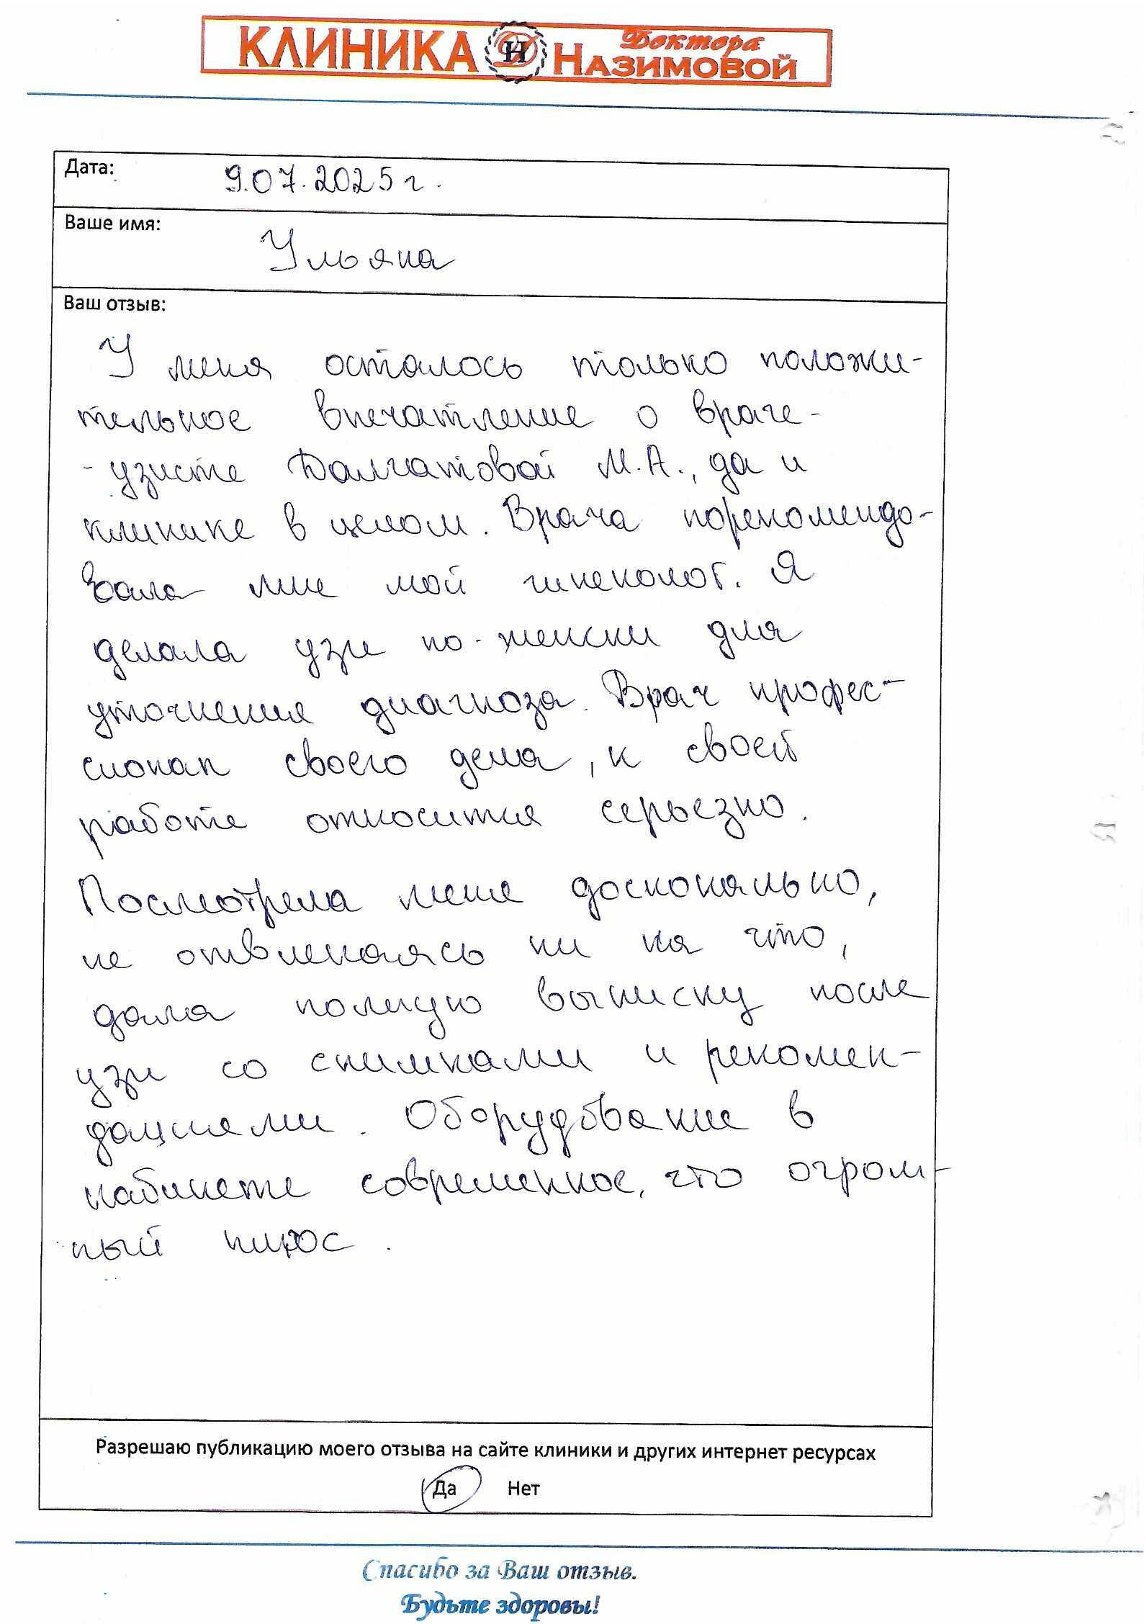 КЛИНИКА ДН Доктора НАЗИМОВОЙ
Дата: 9.07.2025 г.
Ваше имя: Ульяна
Ваш отзыв:
У меня осталось только положи-
тельное впечатление о враче-
-узисте Далгатовой М.А., да и
клинике в целом. Врача порекомендо-
вала мне мой гинеколог. Я
делала узи по-женски для
уточнения диагноза. Врач профес-
сионал своего дела, к своей
работе относится серьезно.
Посмотрела меня досконально,
не отвлекаясь ни на что,
дала полную выписку после
узи со снимками и рекомен-
дациями. Оборудование в
кабинете современное, что огром-
ный плюс.
Разрешаю публикацию моего отзыва на сайте клиники и других интернет ресурсах
Да Нет
Спасибо за Ваш отзыв.
Будьте здоровы!